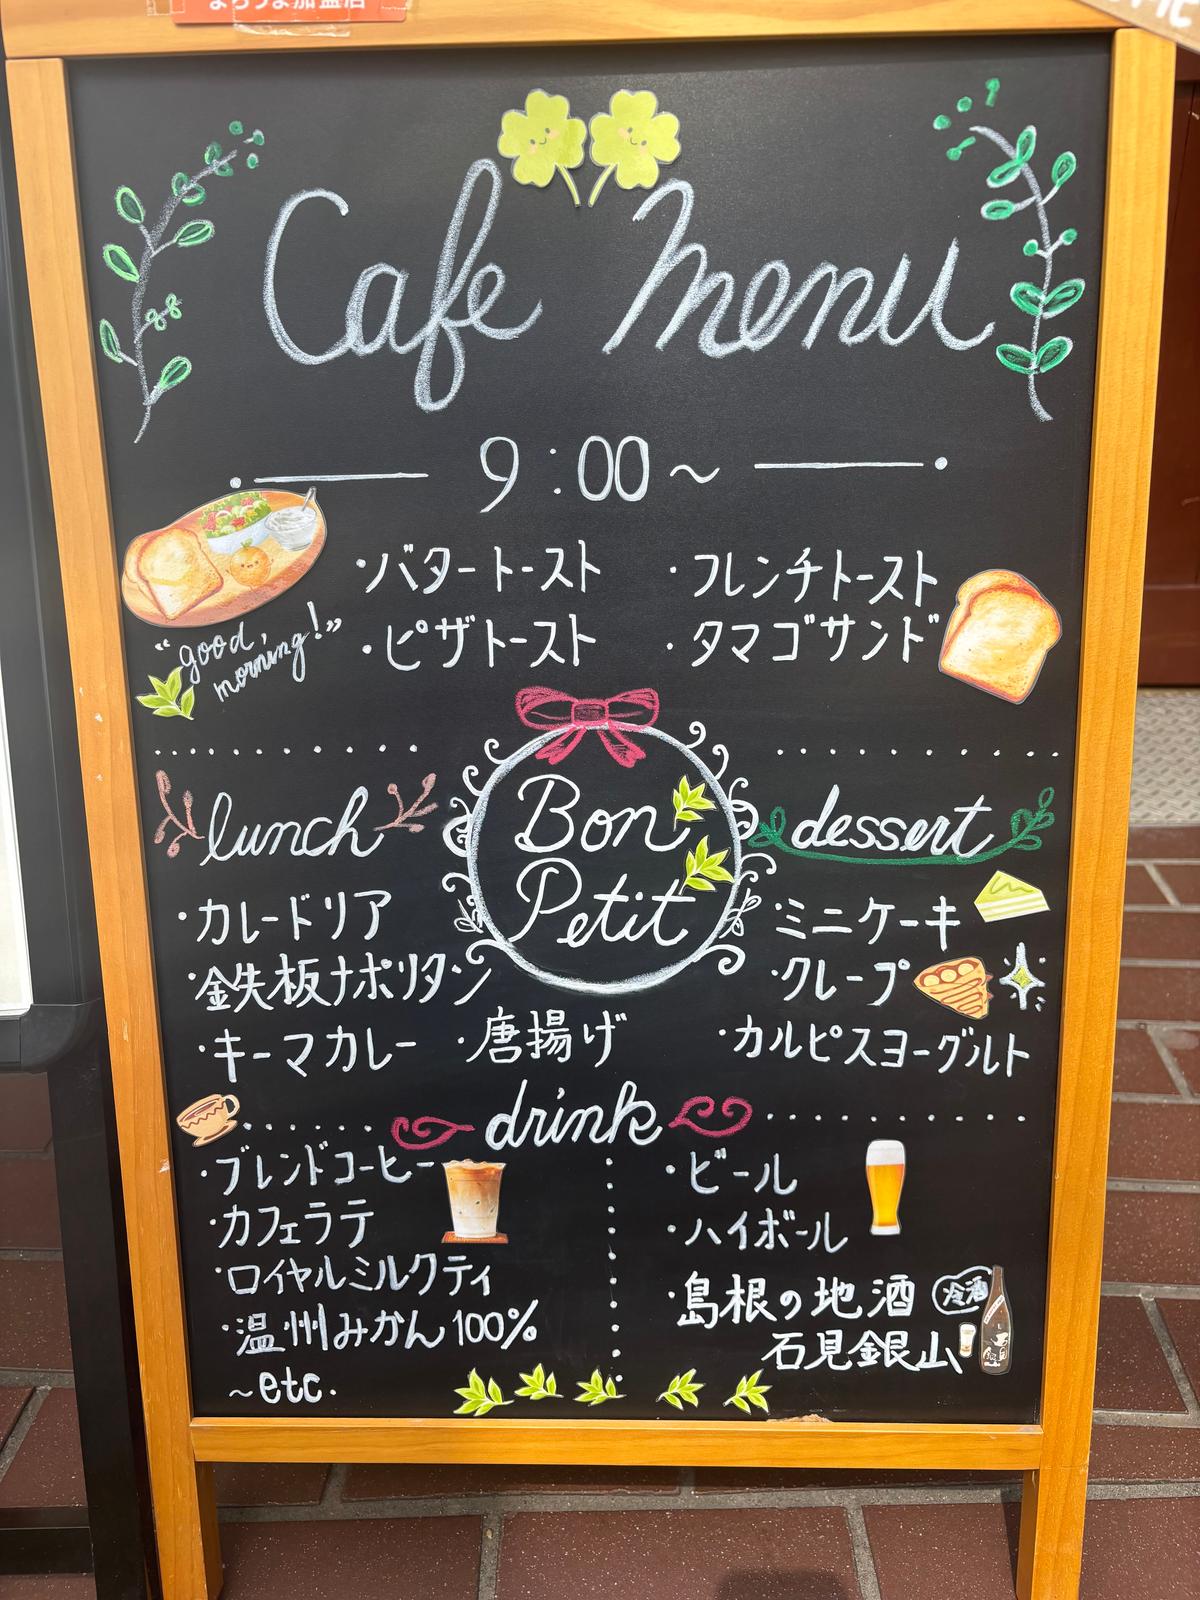 まちうま加盟店
Cafe Menu
9:00～
・バタートースト ・フレンチトースト
・ピザトースト ・タマゴサンド
"good, morning!"
lunch
・カレードリア
・鉄板ナポリタン
・キーマカレー ・唐揚げ
Bon Petit
dessert
・ミニケーキ
・クレープ
・カルピスヨーグルト
drink
・ブレンドコーヒー
・カフェラテ
・ロイヤルミルクティ
・温州みかん100%
～etc.
・ビール
・ハイボール
・島根の地酒 冷酒
石見銀山